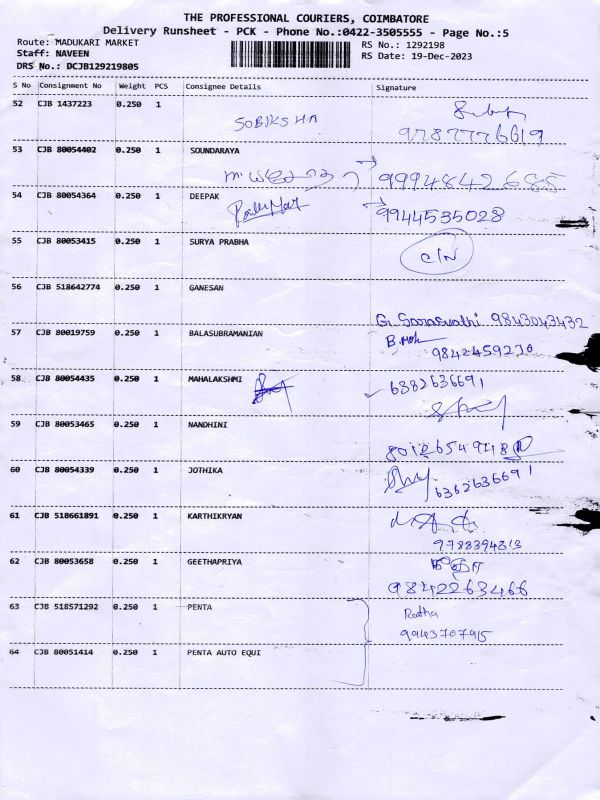 THE PROFESSIONAL COURIERS, COIMBATORE
Delivery Runsheet - PCK - Phone No.:0422-3505555 - Page No.:5
Route: MADUKARI MARKET
RS No.: 1292198
Staff: NAVEEN
RS Date: 19-Dec-2023
DRS No.: DCJB129219805
S No Consignment No Weight PCS Consignee Details Signature
52 CJB 1437223 0.250 1
SOBIKSHA
9787776619
53 CJB 80054402 0.250 1 SOUNDARAYA
9994842685
54 CJB 80054364 0.250 1 DEEPAK
9944535028
55 CJB 80053415 0.250 1 SURYA PRABHA
C/N
56 CJB 518642774 0.250 1 GANESAN
G. Saraswathi 9843043432
57 CJB 80019759 0.250 1 BALASUBRAMANIAN
9842459230
58 CJB 80054435 0.250 1 MAHALAKSHMI
6382636691
59 CJB 80053465 0.250 1 NANDHINI
8012654948
60 CJB 80054339 0.250 1 JOTHIKA
6362636691
61 CJB 518661891 0.250 1 KARTHIKRYAN
9788394313
62 CJB 80053658 0.250 1 GEETHAPRIYA
9842263466
63 CJB 518571292 0.250 1 PENTA
Radha
9943707915
64 CJB 80051414 0.250 1 PENTA AUTO EQUI